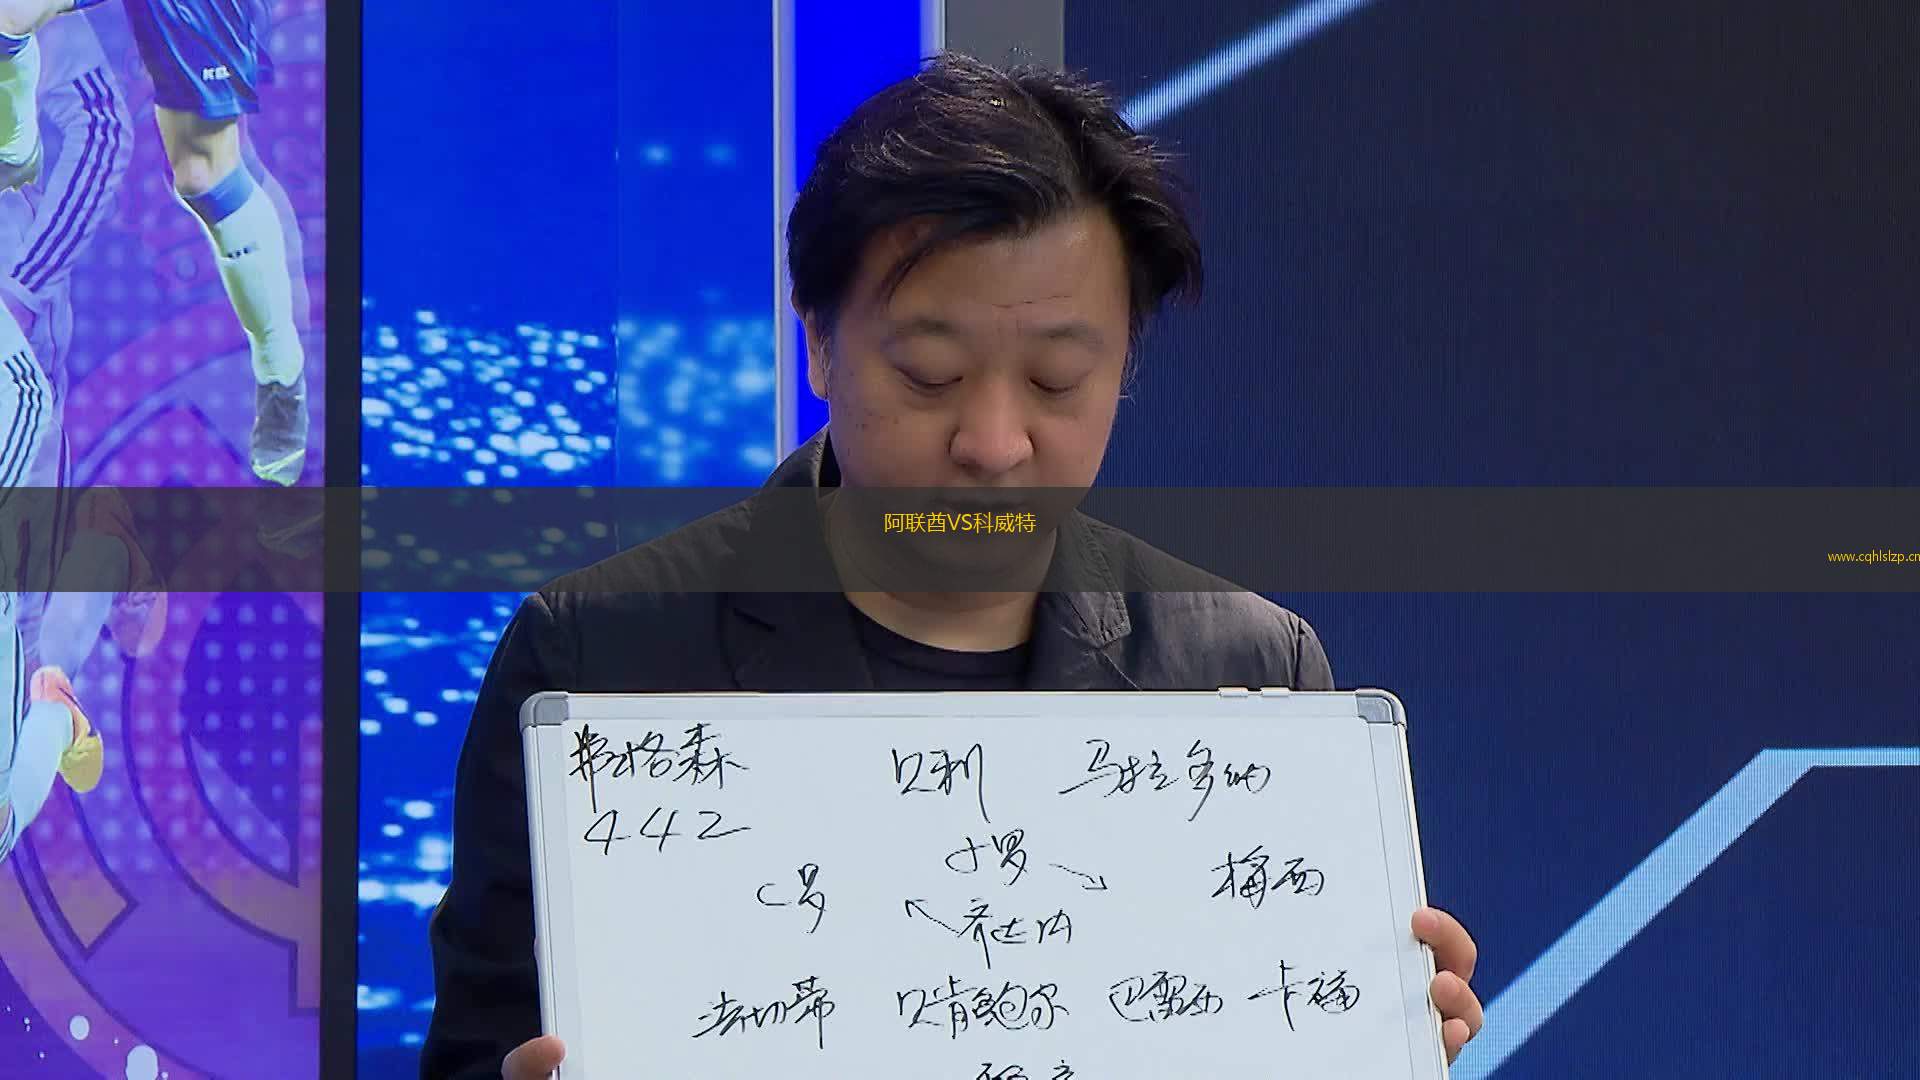 阿联酋VS科威特
www.cqhlslzp.cn
弗格森 贝利 马拉多纳
442
小罗
C罗 梅西
齐达内
法切蒂 贝肯鲍尔 巴雷西 卡福